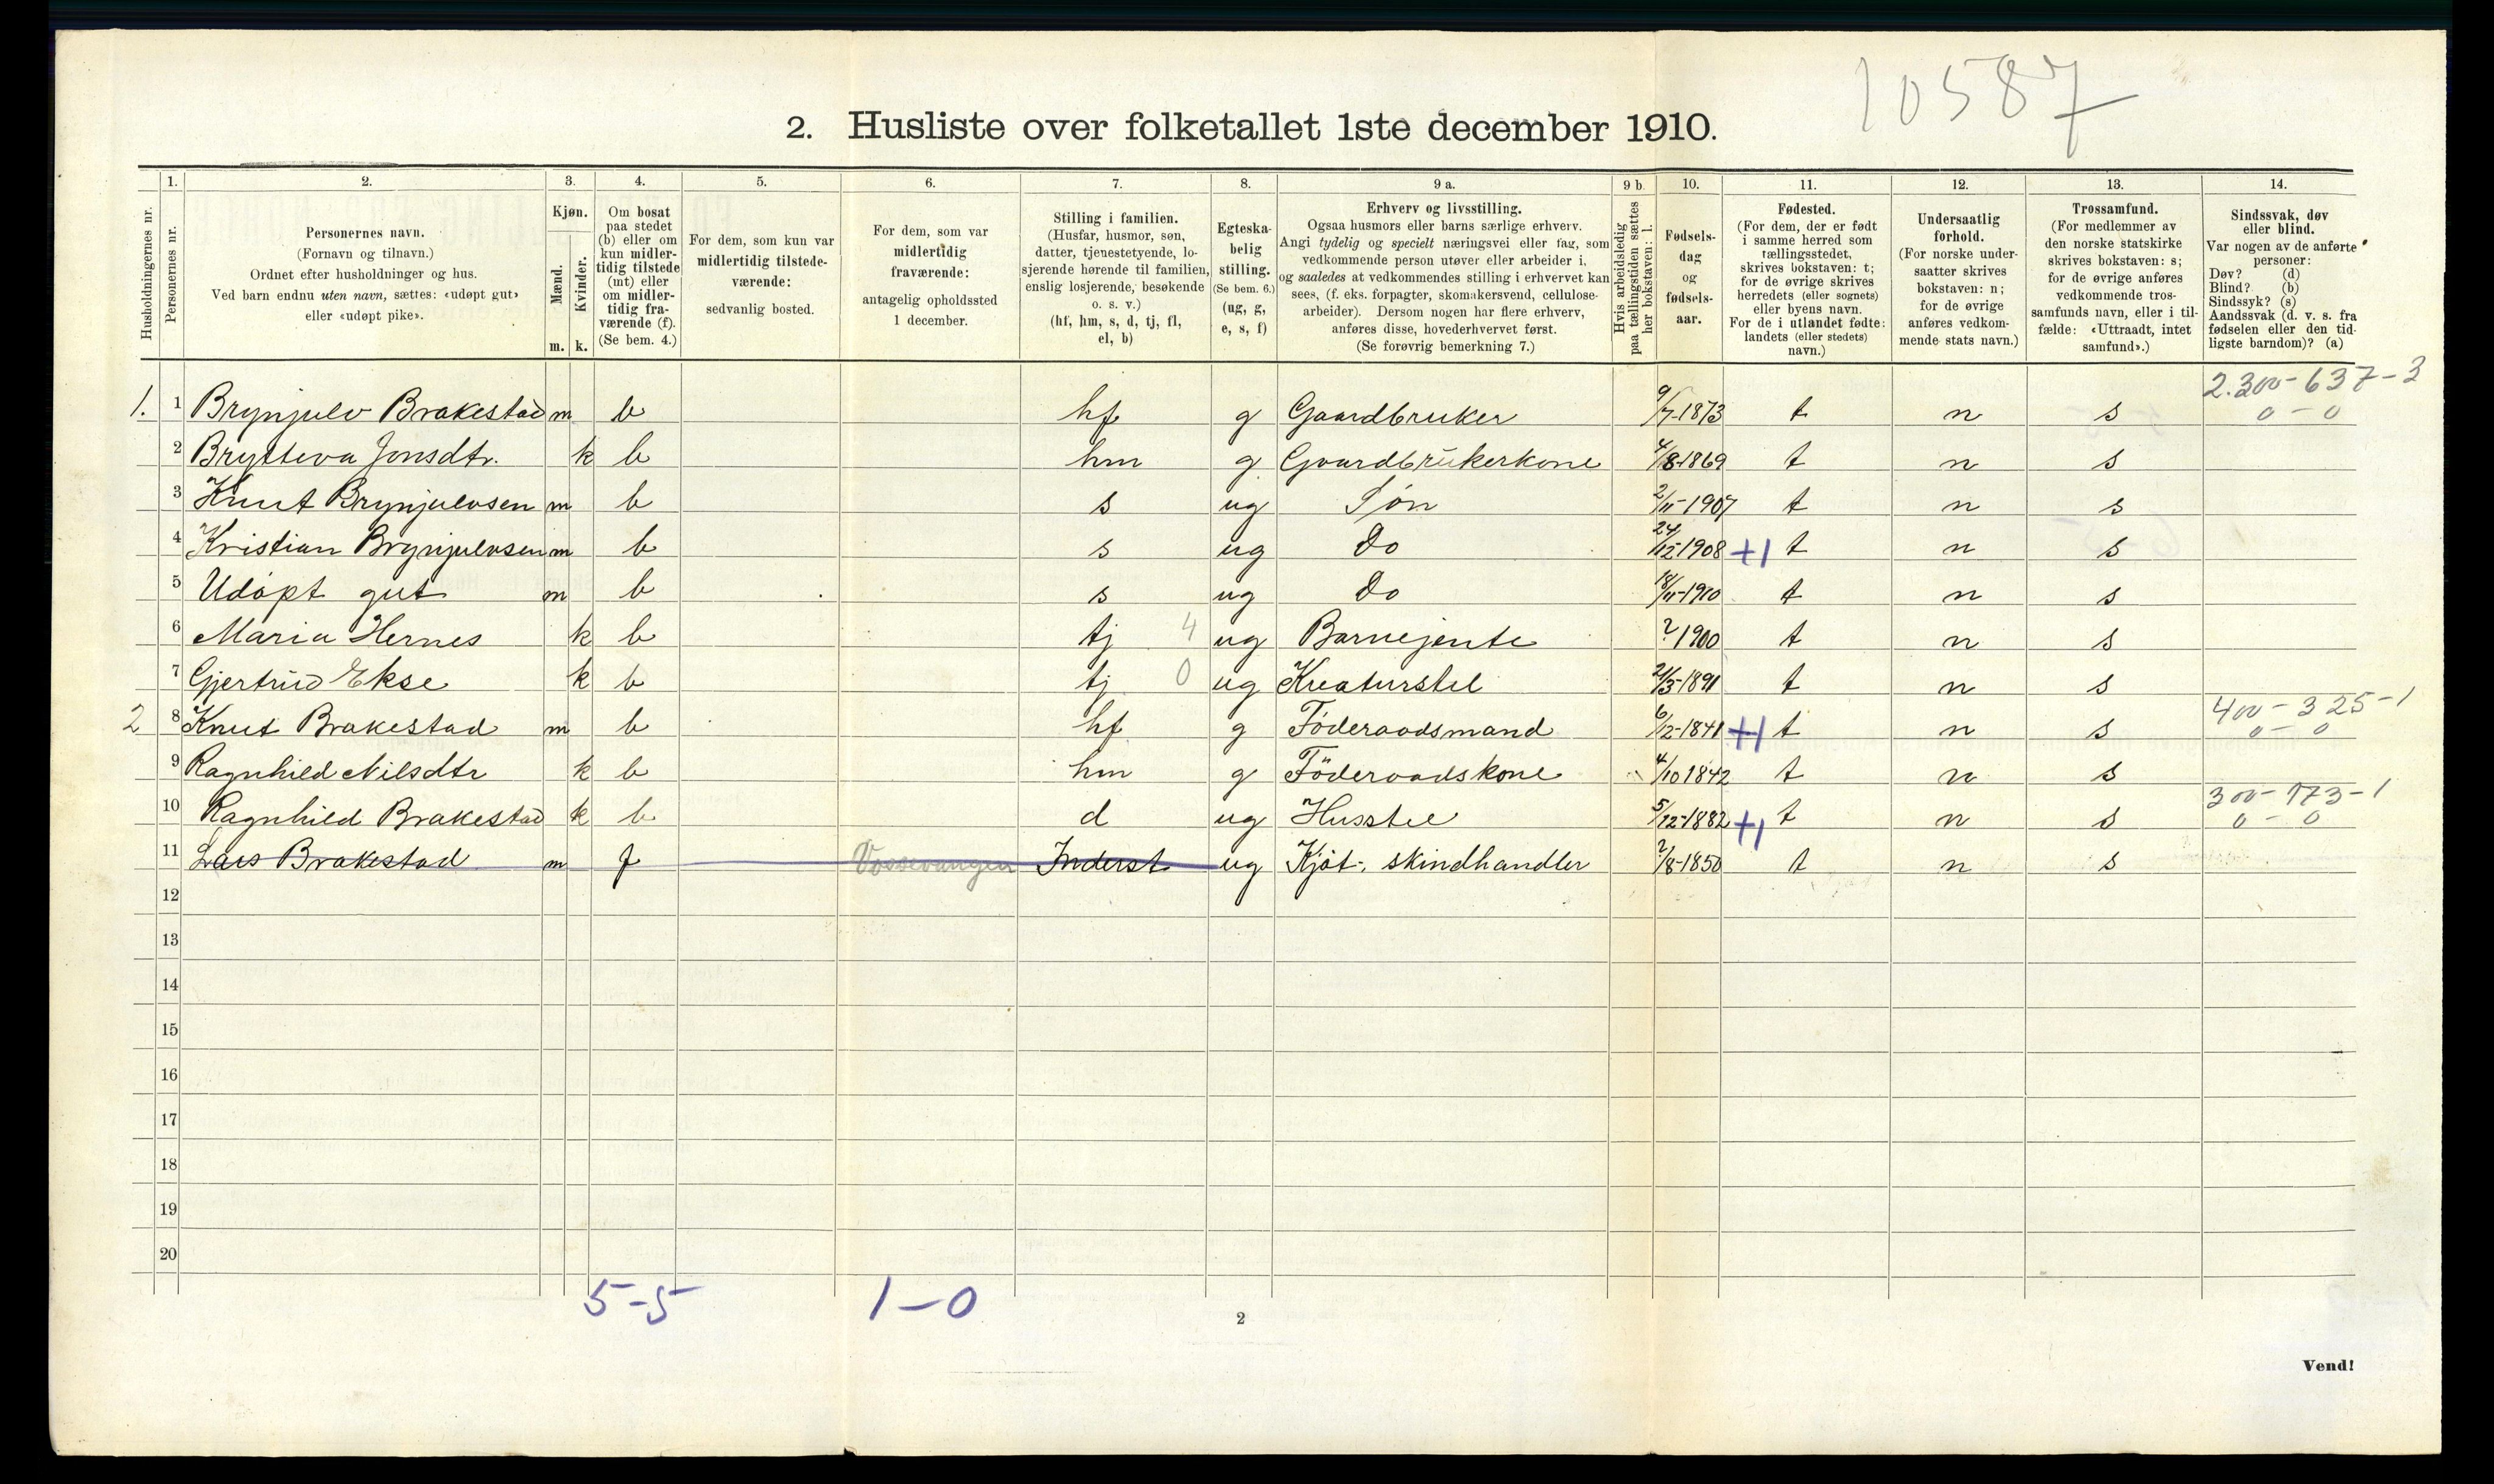 10587
2. Husliste over folketallet 1ste december 1910.
1. 2. 3. 4. 5. 6. 7. 8. 9 a. 9 b. 10. 11. 12. 13. 14.
Husholdningernes nr.
Personernes nr.
Personernes navn.
(Fornavn og tilnavn.)
Ordnet efter husholdninger og hus.
Ved barn endnu uten navn, sættes: «udøpt gut»
eller «udøpt pike».
Kjøn.
Mænd.
Kvinder.
m. k.
Om bosat
paa stedet
(b) eller om
kun midler-
tidig tilstede
(mt) eller
om midler-
tidig fra-
værende (f).
(Se bem. 4.)
For dem, som kun var
midlertidig tilstede-
værende:
sedvanlig bosted.
For dem, som var
midlertidig
fraværende:
antagelig opholdssted
1 december.
Stilling i familien.
(Husfar, husmor, søn,
datter, tjenestetyende, lo-
sjerende hørende til familien,
enslig losjerende, besøkende
o. s. v.)
(hf, hm, s, d, tj, fl,
el, b)
Egteska-
belig
stilling.
(Se bem. 6.)
(ug, g,
e, s, f)
Erhverv og livsstilling.
Ogsaa husmors eller barns særlige erhverv.
Angi tydelig og specielt næringsvei eller fag, som
vedkommende person utøver eller arbeider i,
og saaledes at vedkommendes stilling i erhvervet kan
sees, (f. eks. forpagter, skomakersvend, cellulose-
arbeider). Dersom nogen har flere erhverv,
anføres disse, hovederhvervet først.
(Se forøvrig bemerkning 7.)
Hvis arbeidsledig
paa tællingstiden sættes
her bokstaven: l.
Fødsels-
dag
og
fødsels-
aar.
Fødested.
(For dem, der er født
i samme herred som
tællingsstedet,
skrives bokstaven: t;
for de øvrige skrives
herredets (eller sognets)
eller byens navn.
For de i utlandet fødte:
landets (eller stedets)
navn.)
Undersaatlig
forhold.
(For norske under-
saatter skrives
bokstaven: n;
for de øvrige
anføres vedkom-
mende stats navn.)
Trossamfund.
(For medlemmer av
den norske statskirke
skrives bokstaven: s;
for de øvrige anføres
vedkommende tros-
samfunds navn, eller i til-
fælde: «Uttraadt, intet
samfund».)
Sindssvak, døv
eller blind.
Var nogen av de anførte
personer:
Døv? (d)
Blind? (b)
Sindssyk? (s)
Aandssvak (d. v. s. fra
fødselen eller den tid-
ligste barndom)? (a)
2.300-637-3
1. 1 Brynjulv Brakestad m b hf g Gaardbruker 9/7-1873 t n s 0-0
2 Brytteva Jonsdtr. k b hm g Gaardbrukerkone 4/8-1869 t n s
3 Knut Brynjulvsen m b s ug Søn 2/11-1907 t n s
4 Kristian Brynjulvsen m b s ug Do 24/12-1908 +1 t n s
5 Udøpt gut m b s ug Do 18/11-1910 t n s
6 Maria Hernes k b tj 4 ug Barnejente ? 1900 t n s
7 Gjertrud Ekse k b tj 0 ug Kreaturstel 21/3-1891 t n s
400-325-1
2 8 Knut Brakestad m b hf g Föderaadsmand 6/12-1841 +1 t n s 0-0
9 Ragnhild Nilsdtr k b hm g Föderaadskone 4/10 1842 t n s
300-173-1
10 Ragnhild Brakestad k b d ug Husstel 5/12-1882 +1 t n s 0-0
11 Lars Brakestad m f Vossevangen Inderst ug Kjøt-, skindhandler 2/8-1850 t n s
12
13
14
15
16
17
18
19
20
5-5 1-0
2
Vend!